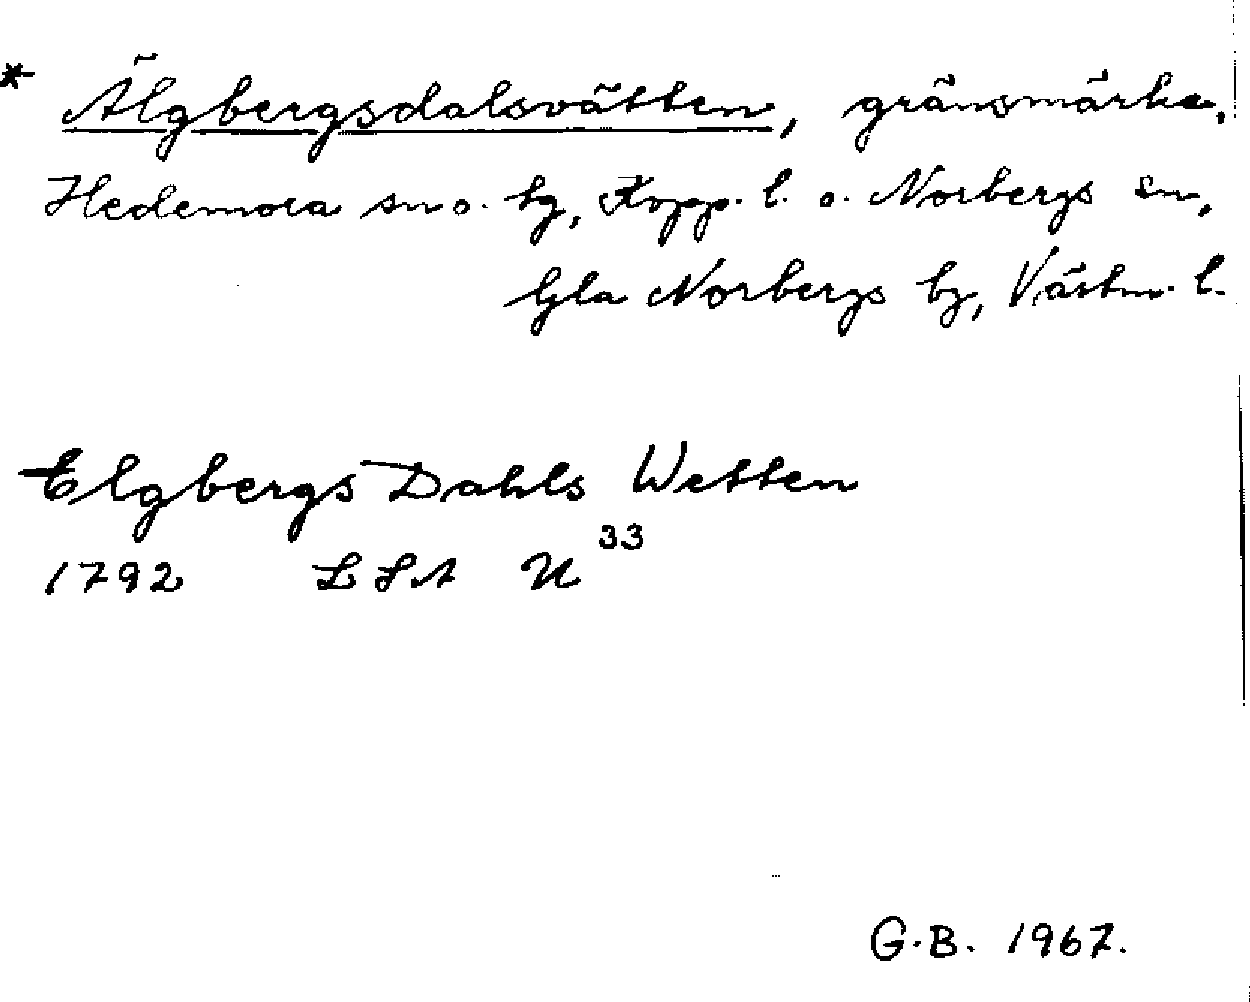 * Älgbergsdalsvätten, gränsmärke,
Hedemora sn o. hg, Kopp. l. o. Norbergs sn,
Gla Norbergs bg, Västm. l.
Elgbergs Dahls Wetten
1792 LSA U³³
G.B. 1967.